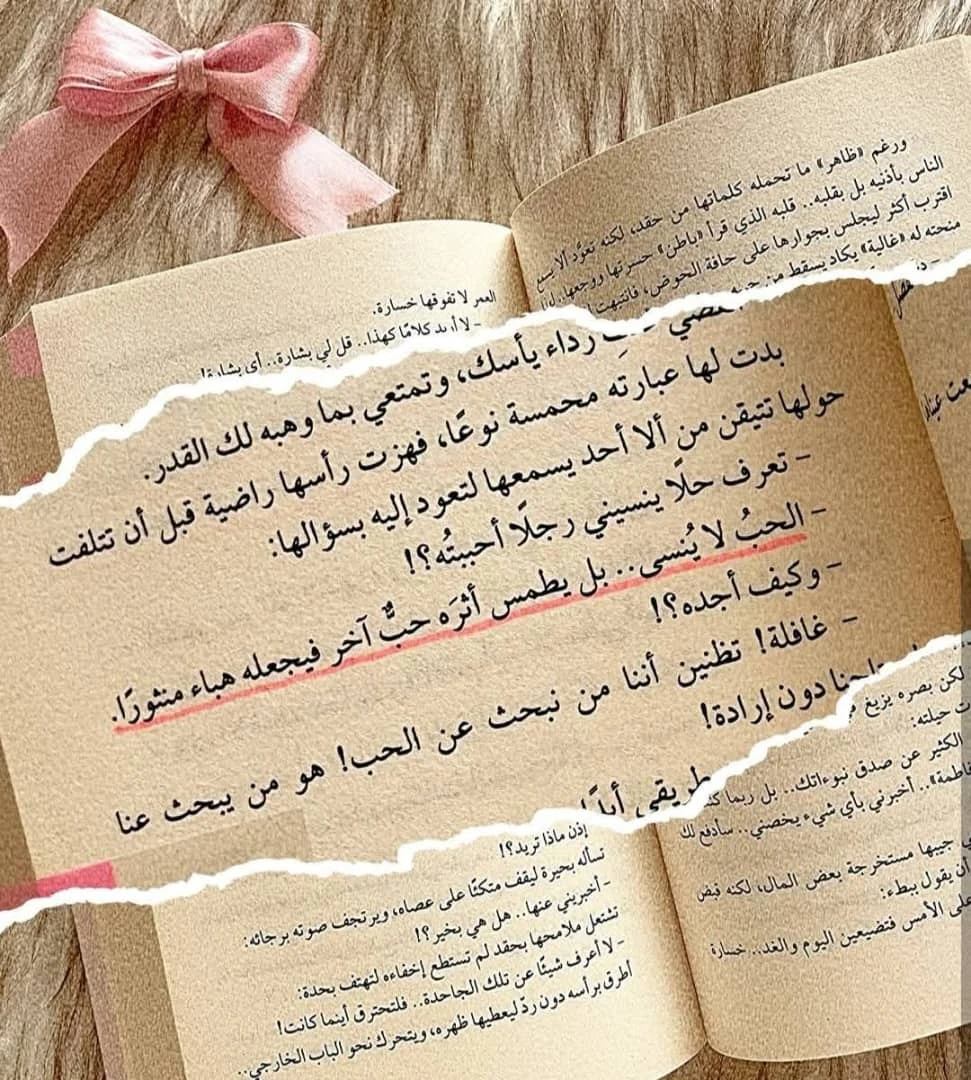 ورغم «ظاهر» ما تحمله كلماتها من حقد، لكنه تعوَّد ألا يسمع
الناس بأذنيه بل بقلبه.. قلبه الذي قرأ «باطن» حسرتها ووجعها..
اقترب أكثر ليجلس بجوارها على حافة الحوض، فانتبهت
منحته له «غالية» يكاد يسقط من
العمر لا تفوقها خسارة.
- لا أريد كلامًا كهذا.. قل لي بشارة.. أي بشارة!
رداء يأسك، وتمتعي بما وهبه لك القدر.
بدت لها عبارته محمسة نوعًا، فهزت رأسها راضية قبل أن تتلفت
حولها تتيقن من ألا أحد يسمعها لتعود إليه بسؤالها:
- تعرف حلًا ينسيني رجلًا أحببتُه؟!
- الحبُ لا يُنسى.. بل يطمس أثرَه حبٌّ آخر فيجعله هباء منثورًا.
- وكيف أجده؟!
- غافلة! تظنين أننا من نبحث عن الحب! هو من يبحث عنا
دون إرادة!
طريقي أبدًا
لكن بصره يزيغ
حيلته:
الكثير عن صدق نبوءاتك.. بل ربما
أخبرني بأي شيء يخصني.. سأدفع لك
جيبها مستخرجة بعض المال، لكنه قبض
أن يقول ببطء:
على الأمس فتضيعين اليوم والغد.. خسارة
إذن ماذا تريد؟!
تسأله بحيرة ليقف متكئًا على عصاه، ويرتجف صوته برجائه:
- أخبريني عنها.. هل هي بخير؟!
تشتعل ملامحها بحقد لم تستطع إخفاءه لتهتف بحدة:
- لا أعرف شيئًا عن تلك الجاحدة.. فلتحترق أينما كانت!
أطرق برأسه دون ردّ ليعطيها ظهره، ويتحرك نحو الباب الخارجي..